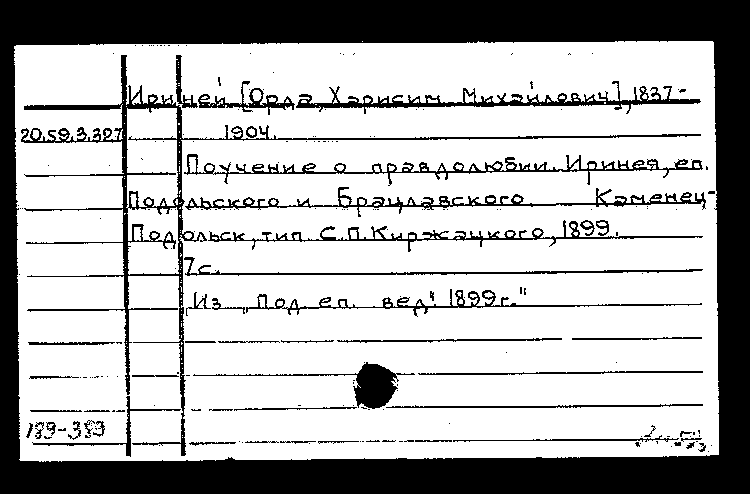 Ириней [Орда, Харисим Михайлович], 1837-
20.59.3.327 1904.
Поучение о правдолюбии. Иринея, еп.
Подольского и Брацлавского. Каменец-
Подольск, тип. С.П. Киржацкого, 1899.
7с.
Из „Под. еп. вед." 1899г."
189-389